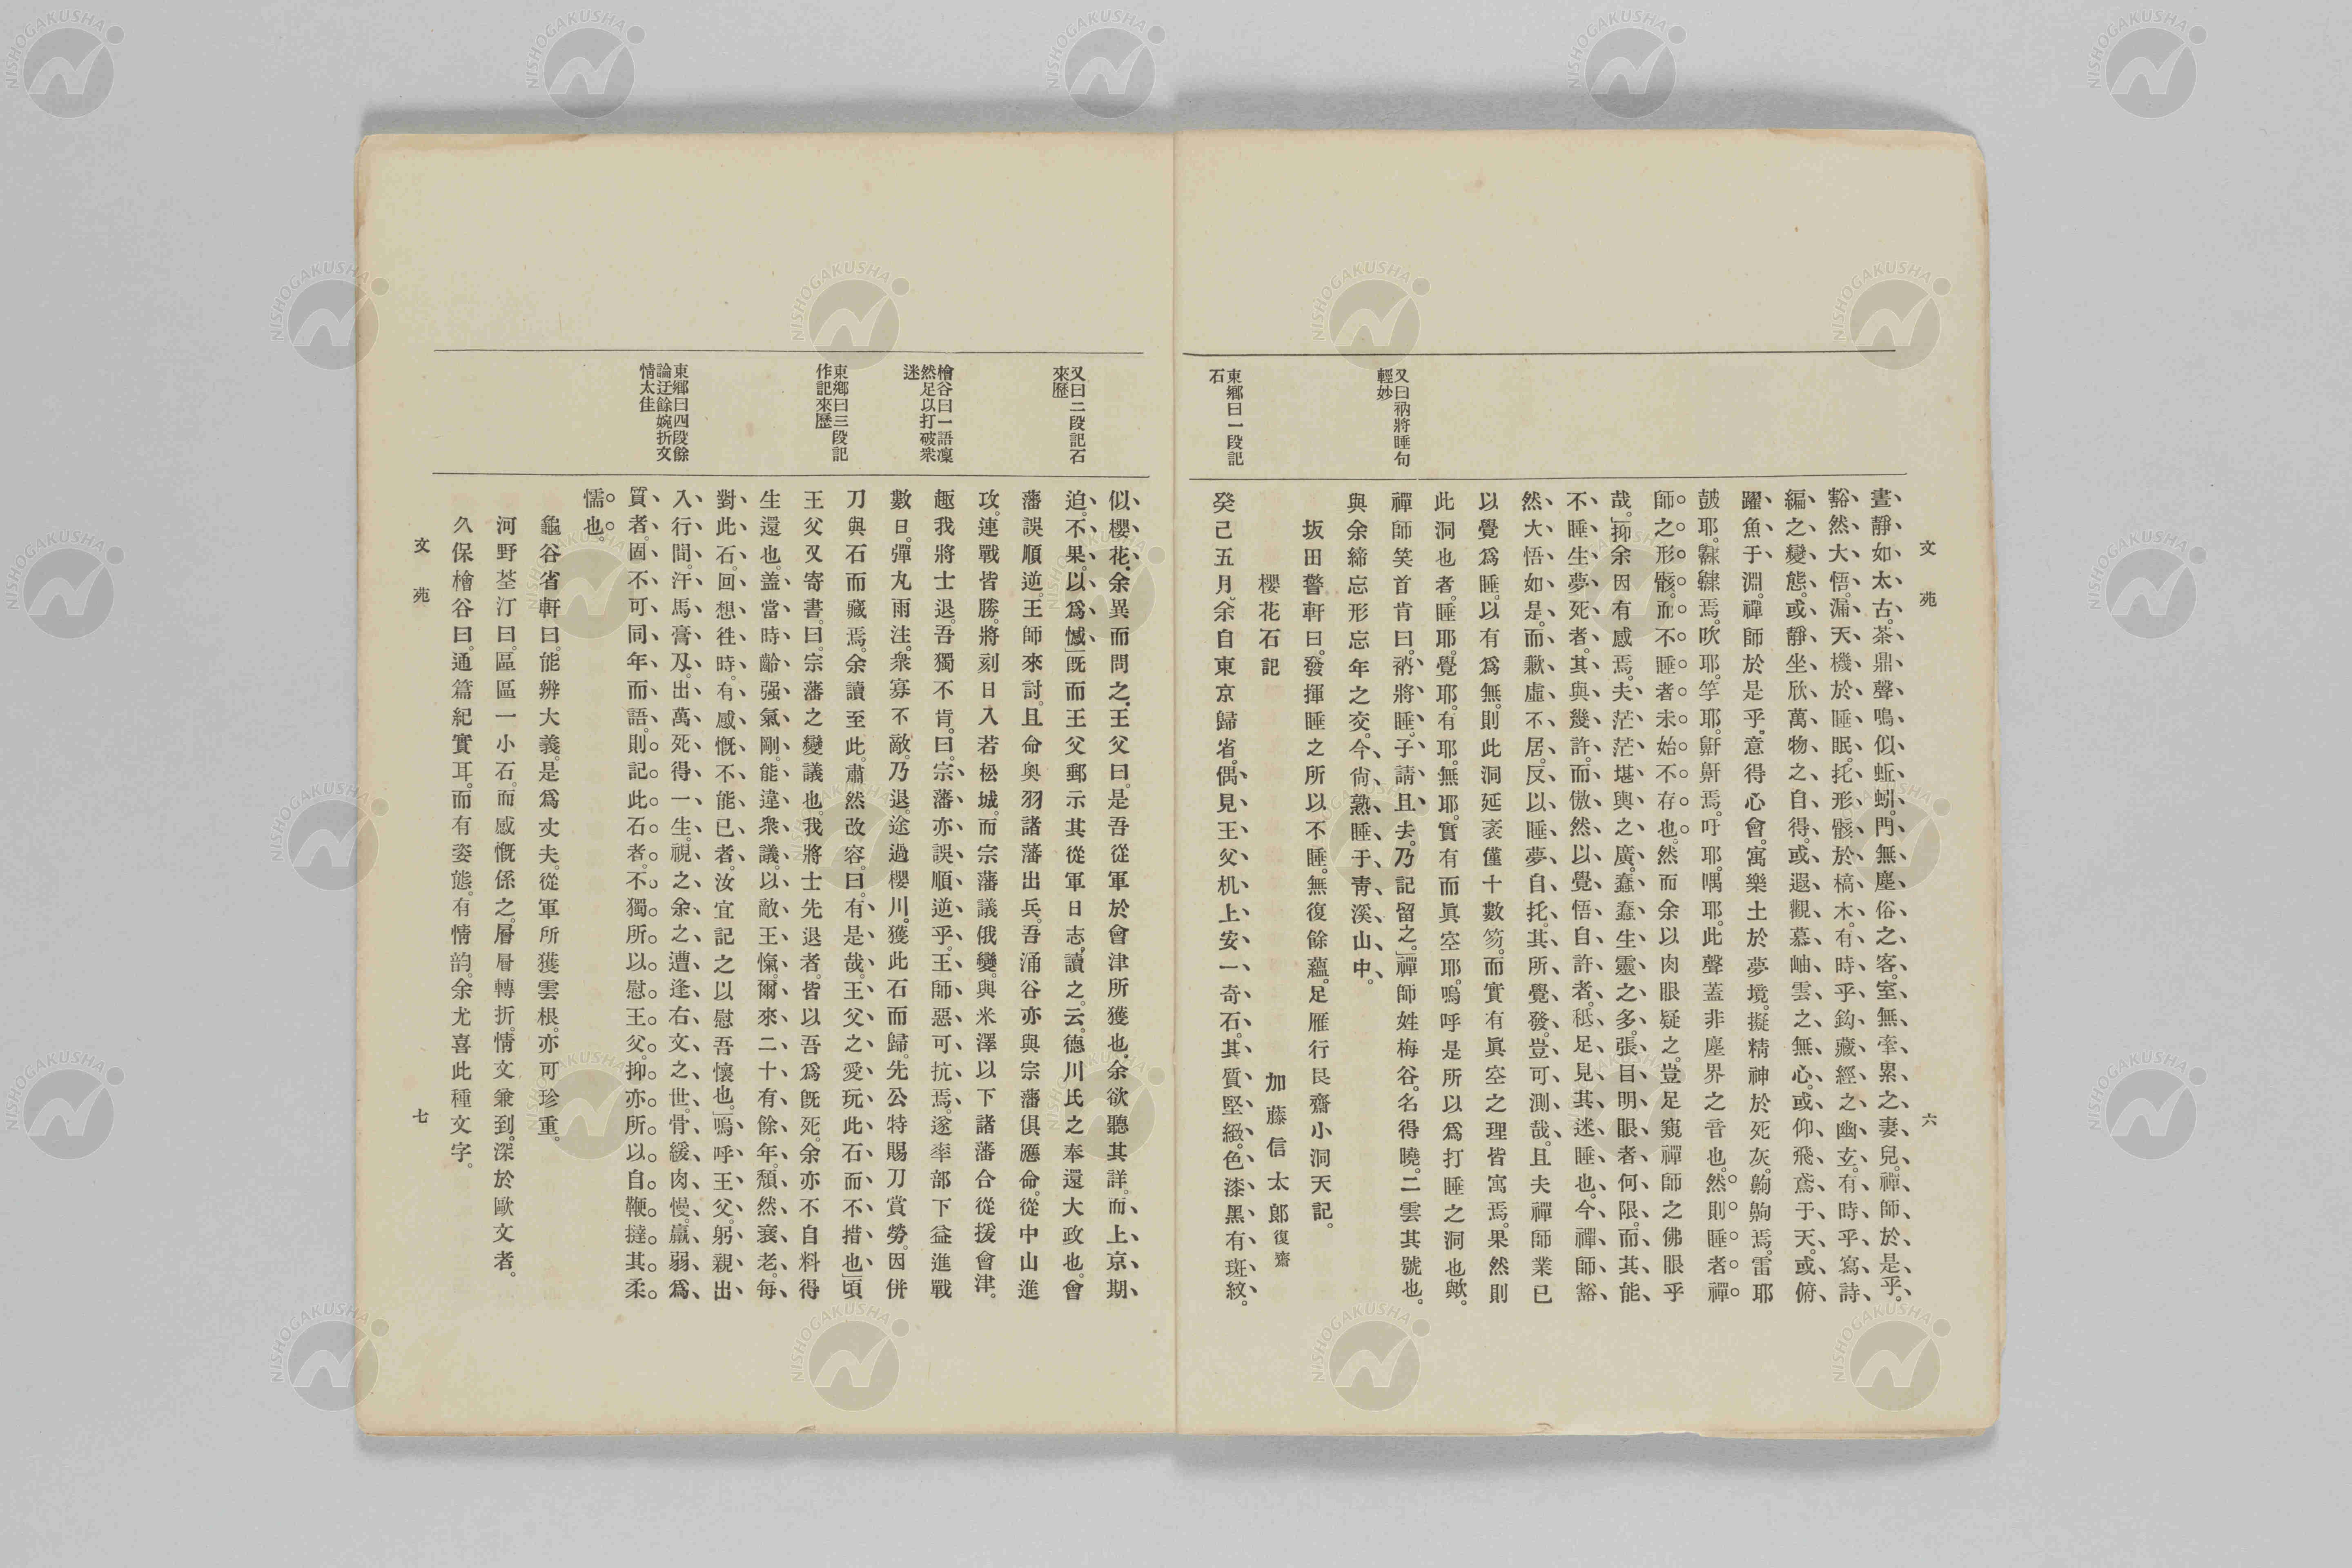 文苑
六
晝靜如太古。茶鼎聲鳴似蚯蚓。門無塵俗之客。室無牽累之妻兒。禪師於是乎。
豁然大悟。漏天機於睡眠。托形骸於槁木。有時乎鈎藏經之幽玄。有時乎寫詩
編之變態。或靜坐欣萬物之自得。或遐觀慕岫雲之無心。或仰飛鳶于天。或俯
躍魚于淵。禪師於是乎。意得心會。寓樂土於夢境。擬精神於死灰。齁齁焉。雷耶
皷耶。齂齂焉。吹耶。竽耶。鼾鼾焉。吁耶。喁耶。此聲蓋非塵界之音也。然則睡者。禪
師之形骸。而不睡者未始不存也。然而余以肉眼疑之。豈足窺禪師之佛眼乎
哉。」抑余因有感焉。夫茫茫堪輿之廣。蠢蠢生靈之多。張目明眼者何限。而其能
不睡生夢死者。其與幾許。而傲然以覺悟自許者。秪足見其迷睡也。今禪師豁
然大悟如是。而歉虛不居。反以睡夢自托。其所覺發。豈可測哉。且夫禪師業已
以覺爲睡。以有爲無。則此洞延袤僅十數笏。而實有眞空之理皆寓焉。果然則
此洞也者。睡耶。覺耶。有耶。無耶。實有而眞空耶。嗚呼是所以爲打睡之洞也歟。
禪師笑首肯曰。衲將睡。子請且去。乃記留之。」禪師姓梅谷。名得曉。二雲其號也。
與余締忘形忘年之交。今尙熟睡于靑溪山中。
又曰衲將睡句
輕妙
坂田警軒曰。發揮睡之所以不睡。無復餘蘊。足雁行艮齋小洞天記。
櫻花石記
加藤信太郞復齋
癸己五月。余自東京歸省。偶見王父机上安一奇石。其質堅緻。色漆黑有斑紋。
東鄕曰一段記
石
似櫻花。余異而問之。王父曰。是吾從軍於會津所獲也。余欲聽其詳。而上京期
迫。不果。以爲憾。」既而王父郵示其從軍日志。讀之。云。德川氏之奉還大政也。會
又曰二段記石
來歷
藩誤順逆。王師來討。且命奥羽諸藩出兵。吾涌谷亦與宗藩俱應命。從中山進
攻。連戰皆勝。將刻日入若松城。而宗藩議俄變。與米澤以下諸藩合從援會津。
趣我將士退。吾獨不肯。曰。宗藩亦誤順逆乎。王師惡可抗焉。遂率部下益進戰
檜谷曰一語凜
然足以打破衆
迷
數日。彈丸雨注。衆寡不敵。乃退。途過櫻川。獲此石而歸。先公特賜刀賞勞。因併
刀與石而藏焉。余讀至此。肅然改容。曰。有是哉。王父之愛玩此石而不措也。」頃
王父又寄書。曰。宗藩之變議也。我將士先退者。皆以吾爲既死。余亦不自料得
東鄕曰三段記
作記來歷
生還也。盖當時齡强氣剛。能違衆議。以敵王愾。爾來二十有餘年。頽然衰老。每
對此石。回想徃時。有感慨不能已者。汝宜記之以慰吾懷也。」嗚呼王父。躬親出
入行間。汗馬膏刄。出萬死得一生。視之余之遭逢右文之世。骨緩肉慢。羸弱爲
東鄕曰四段餘
論迂餘婉折文
情太佳
質者。固不可同年而語。則記此石者。不獨所以慰王父。抑亦所以自鞭撻其柔
懦也。
龜谷省軒曰。能辨大義。是爲丈夫。從軍所獲雲根。亦可珍重。
河野荃汀曰。區區一小石。而感慨係之。層層轉折。情文兼到。深於歐文者。
久保檜谷曰。通篇紀實耳。而有姿態。有情韵。余尤喜此種文字。
文苑
七